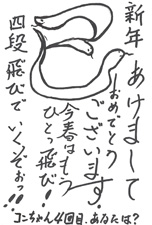 新年
あけまして
おめでとう
ございます!
今春はもう
ひとっ飛び!
四段飛びで
いくぞおっ!!
コンちゃん4回目、あなたは?